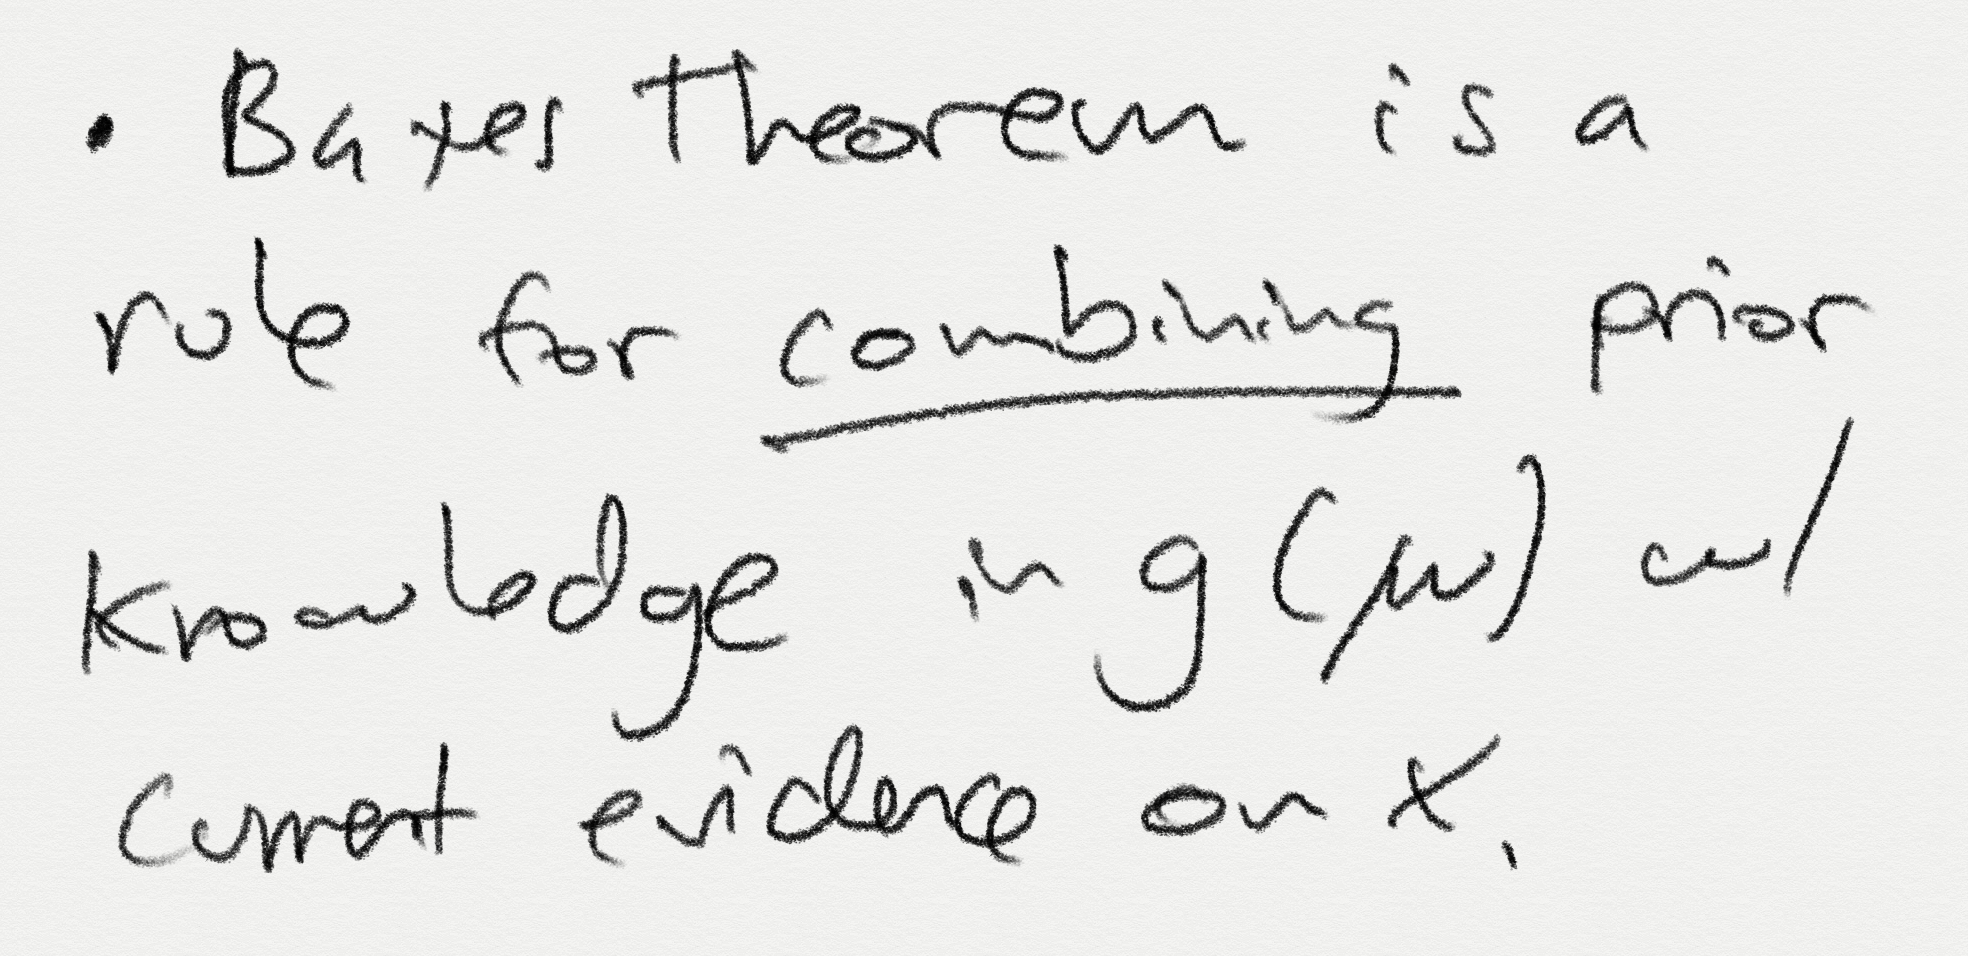 • Bayes Theorem is a
rule for combining prior
knowledge in g(μ) w/
current evidence on x.